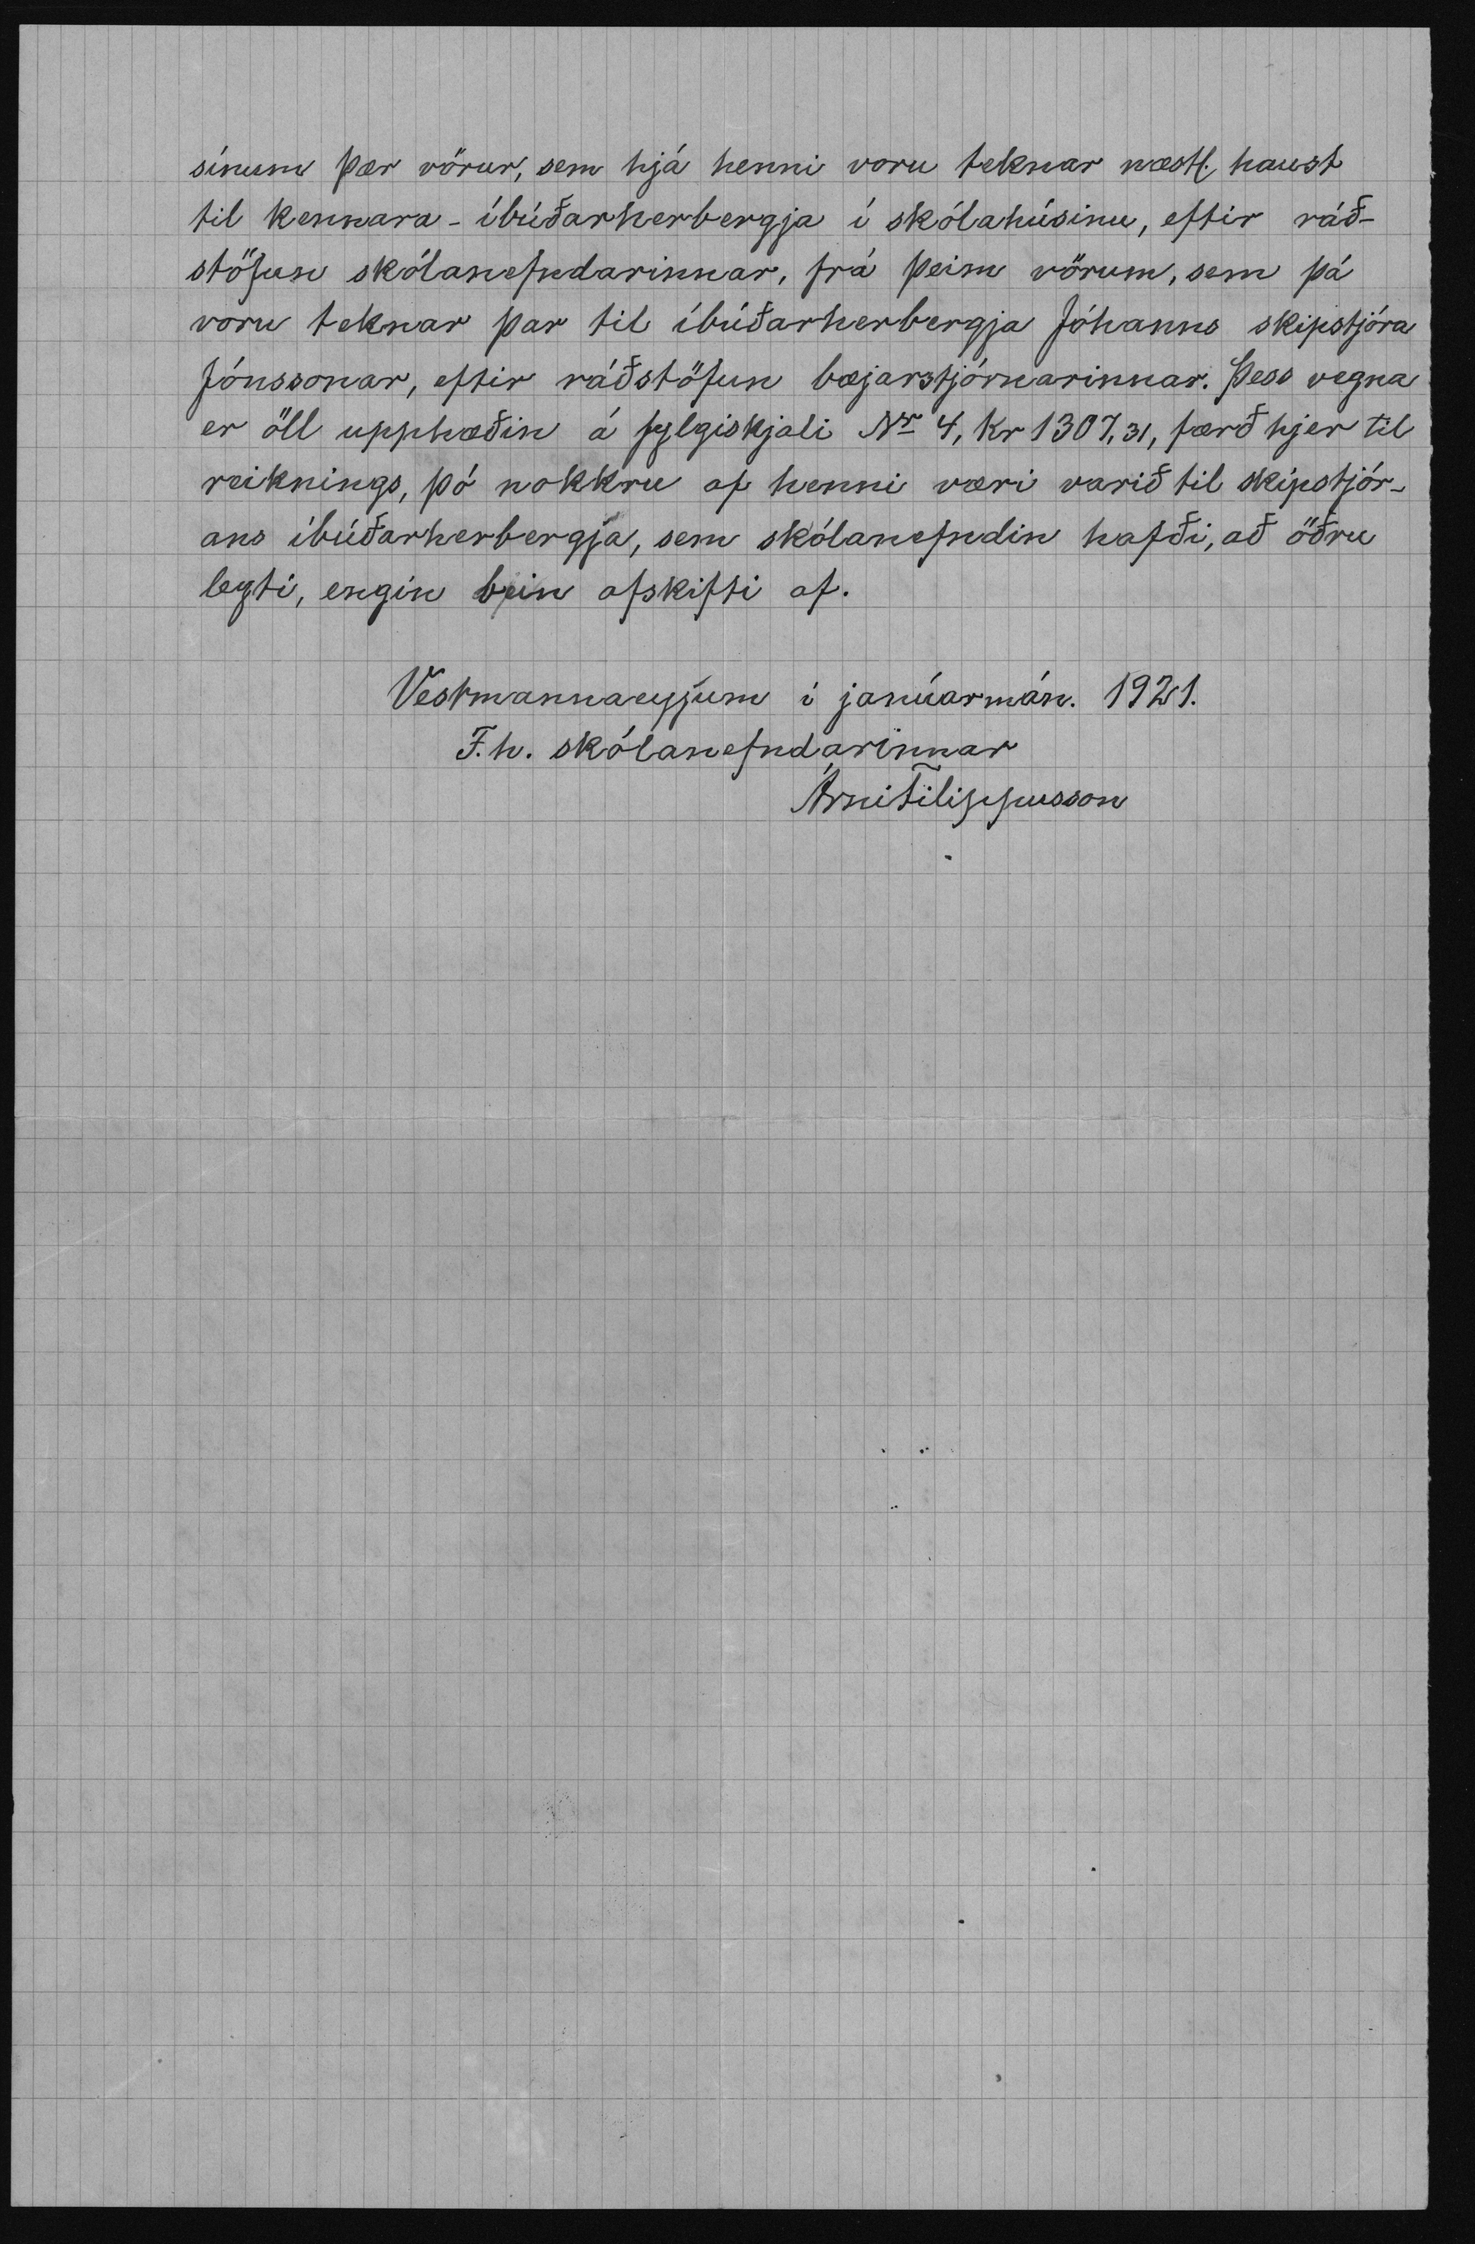 sínum þær vörur, sem hjá henni voru teknar næstl. haust
til kennara-íbúðarherbergja í skólahúsinu, eftir ráð-
stöfun skólanefndarinnar, frá þeim vörum, sem þá
voru teknar þar til íbúðarherbergja Jóhanns skipstjóra
Jónssonar, eftir ráðstöfun bæjarstjórnarinnar. Þess vegna
er öll upphæðin á fylgiskjali Nr 4, kr 1307,31, færð hjer til
reiknings, þó nokkru af henni væri varið til skipstjór-
ans íbúðarherbergja, sem skólanefndin hafði, að öðru
leyti, engin bein afskifti af.
Vestmannaeyjum í janúarmán. 1921.
F.h. skólanefndarinnar
Árni Filippusson